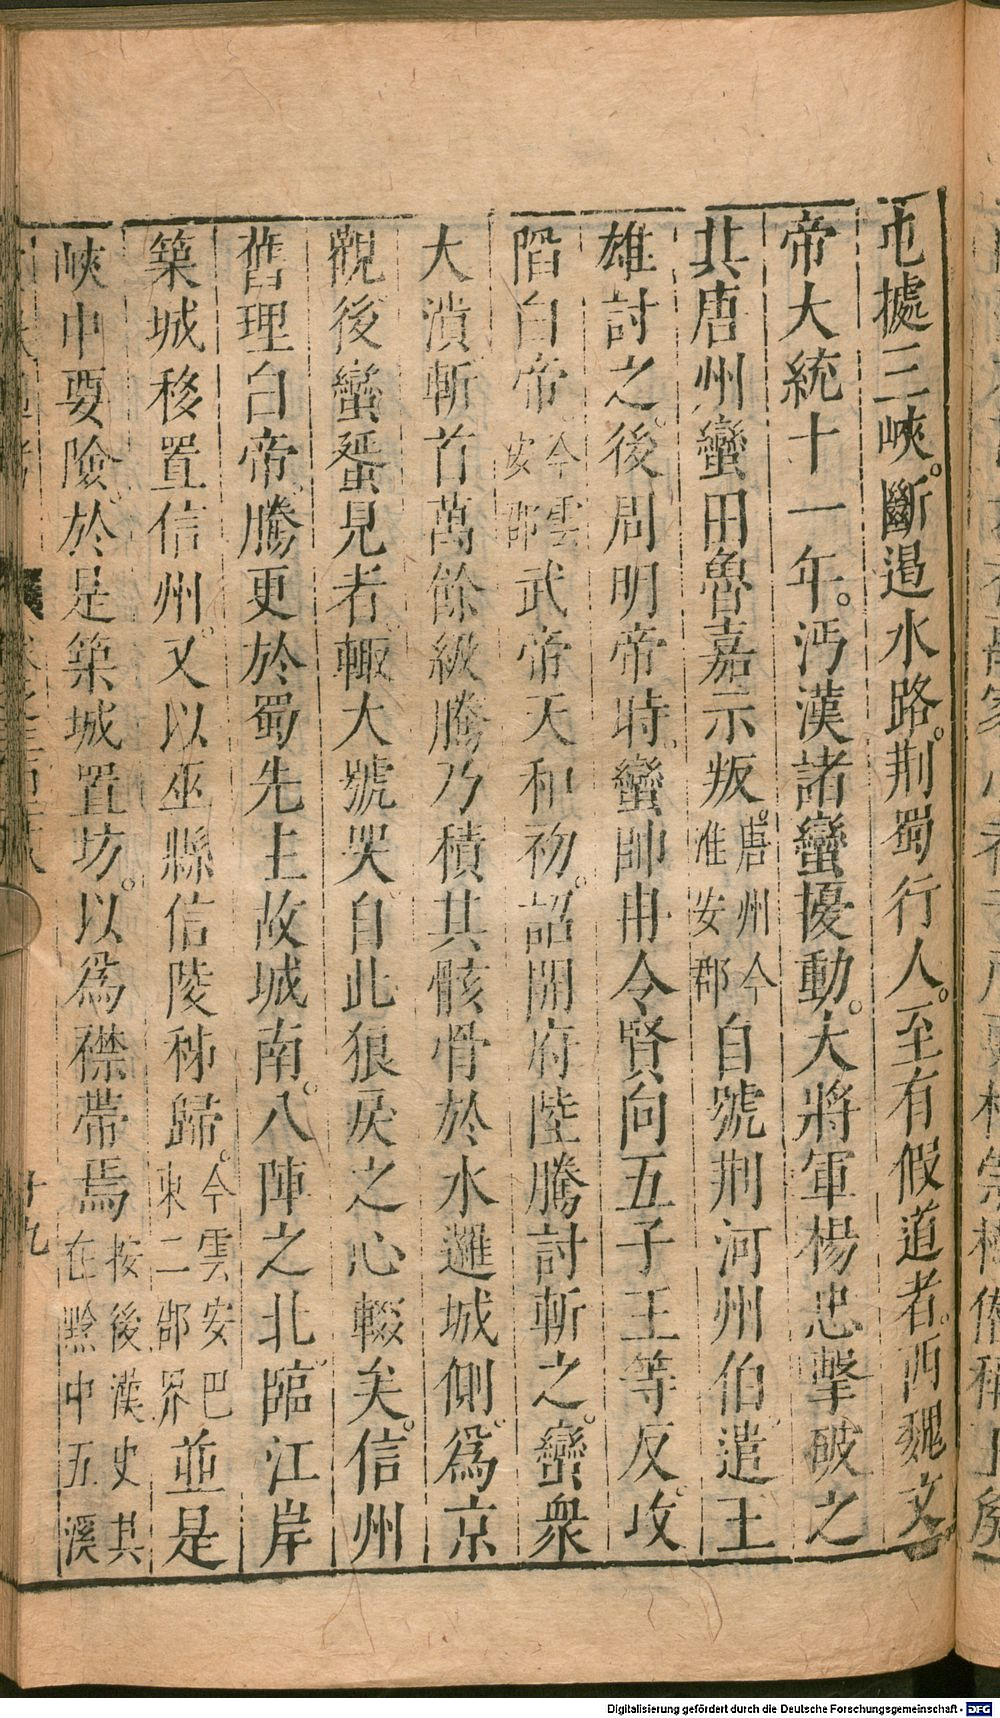 屯據三峽。斷遏水路。荆蜀行人。至有假道者。西魏文
帝大統十一年。沔漢諸蠻擾動。大將軍楊忠擊破之
其唐州蠻田魯嘉示叛。唐州今淮安郡自號荆河州伯遣王
雄討之。後周明帝時。蠻帥冉令賢向五子王等反。攻
陷白帝。今雲安郡武帝天和初。詔開府陸騰討斬之。蠻衆
大潰斬首萬餘級騰乃積其骸骨於水邏城側。爲京
觀後蠻蜑見者輒大號哭。自此狼戾之心輟矣。信州
舊理白帝。騰更於蜀先主故城南。八陣之北臨江岸
築城移置信州。又以巫縣信陵秭歸。今雲安巴東二郡界並是
峽中要險。於是築城置坊。以爲襟帶焉按後漢史其在黔中五溪
十九
Digitalisierung gefördert durch die Deutsche Forschungsgemeinschaft - DFG